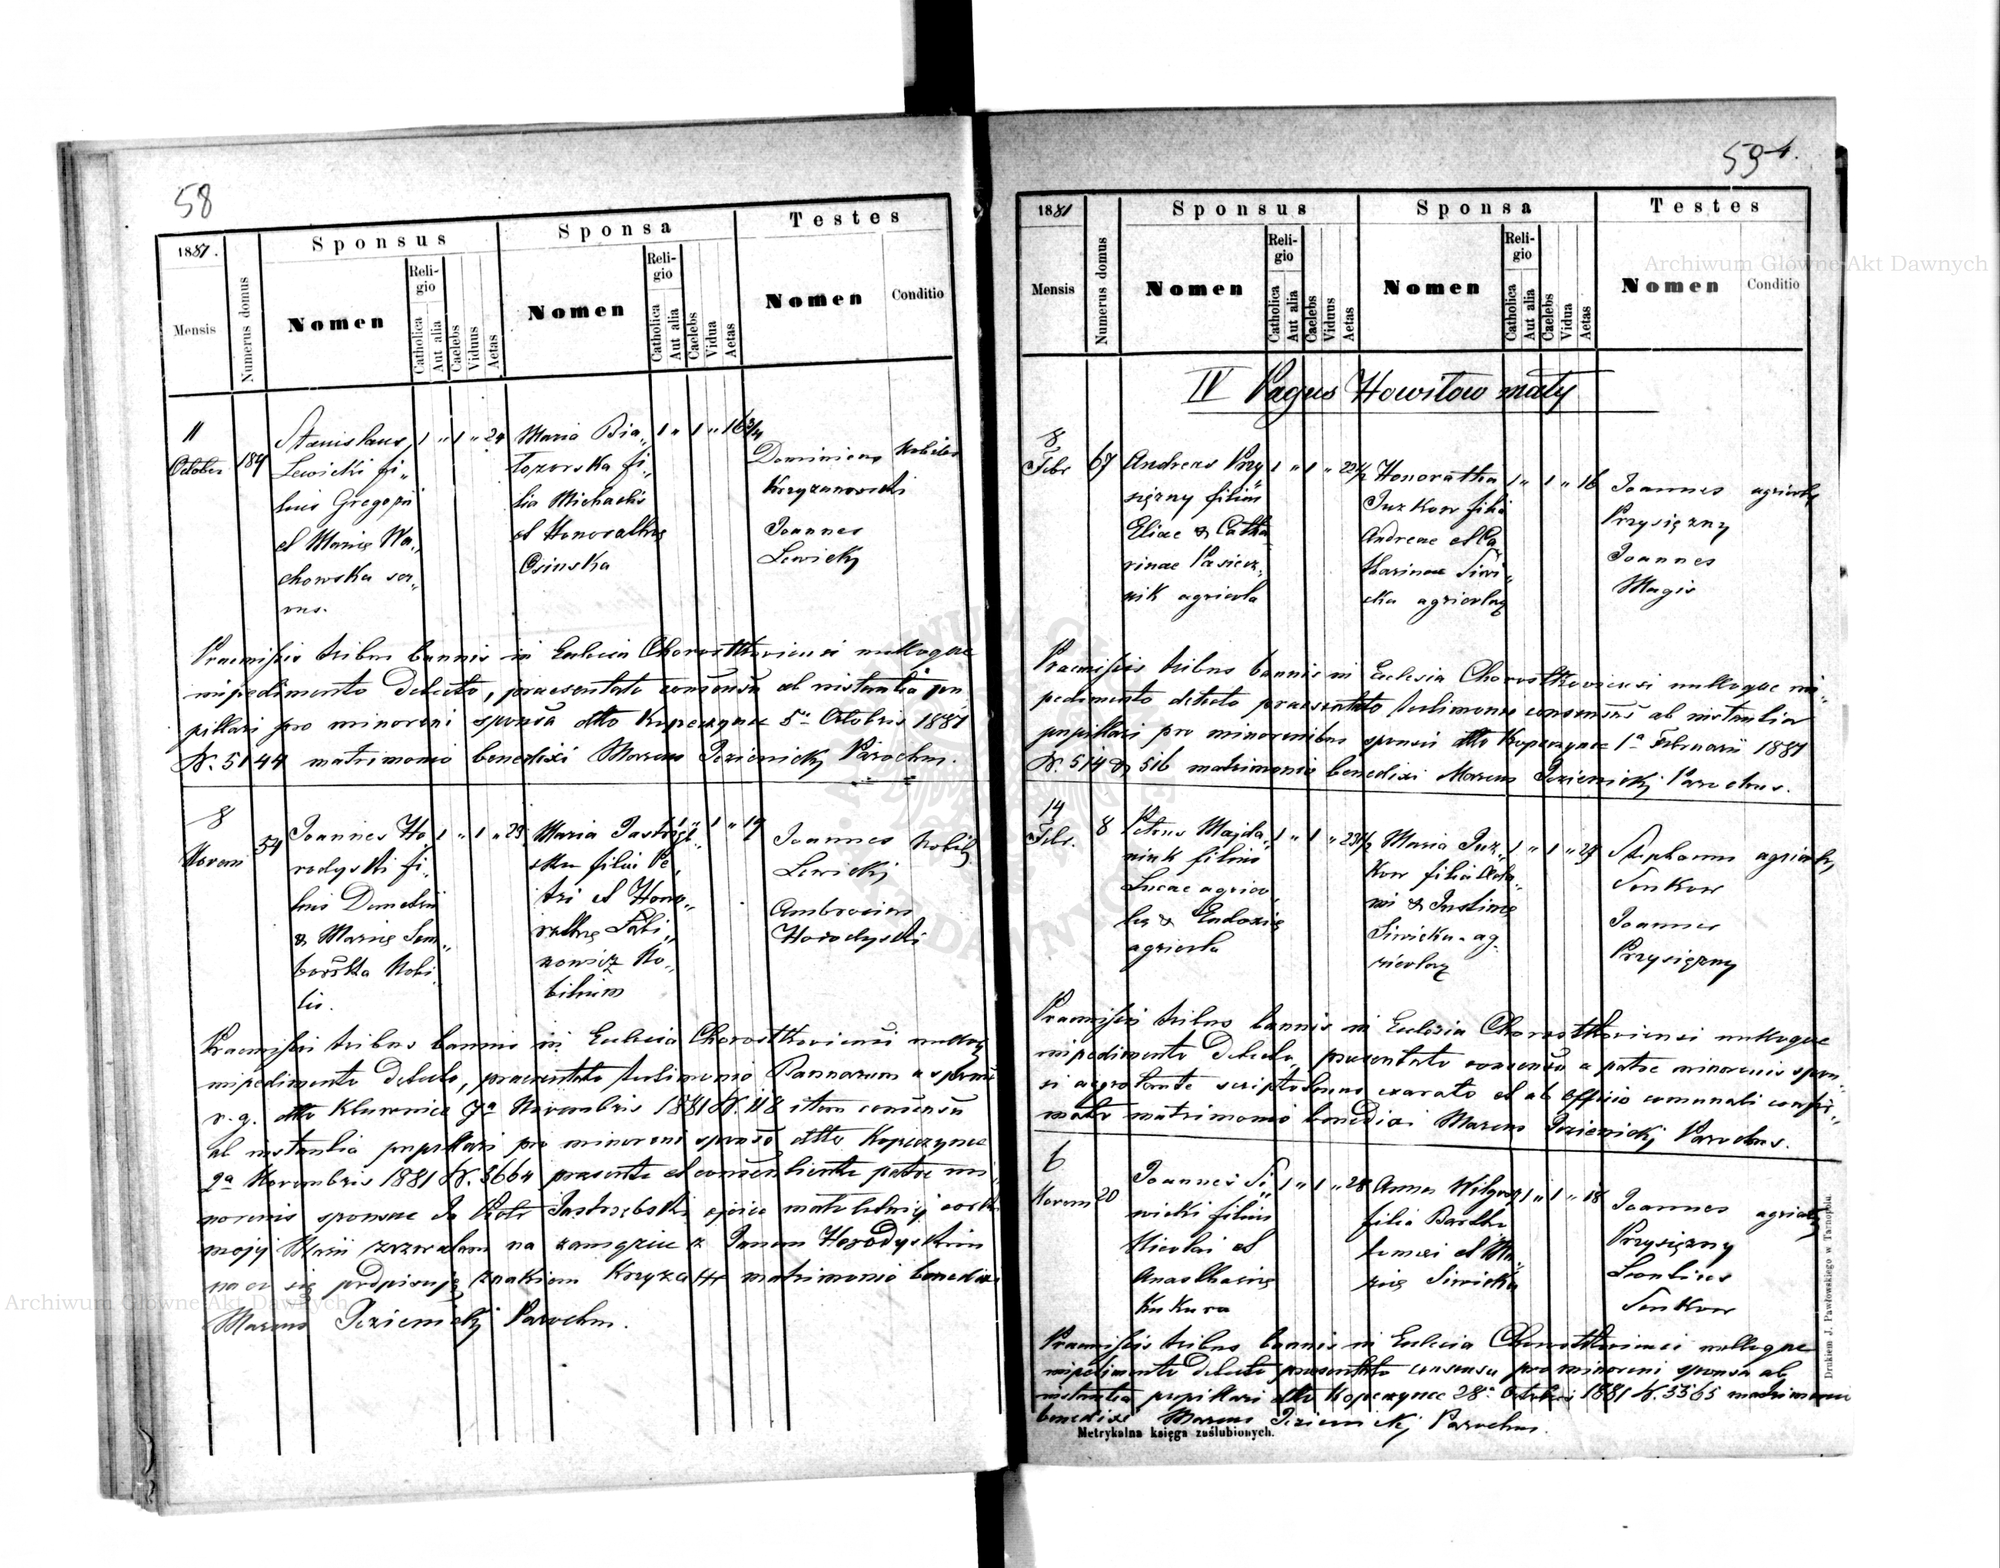 58
1881.
Mensis
Numerus domus
Sponsus
Nomen
Religio
Catholica
Aut alia
Caelebs
Viduus
Aetas
Sponsa
Nomen
Religio
Catholica
Aut alia
Caelebs
Vidua
Aetas
Testes
Nomen
Conditio
11
October
184
Stanislaus
Lewicki fi„
lius Gregorii
et Marię Wa„
chowska ser„
vus.
1 „ 1 „ 24
Maria Bia„
łozorska fi„
lia Michaelis
et Honorathę
Osinska
1 „ 1 „ 16 3/4
Dominicus
Krzyzanowski
Joannes
Lewicky
Nobiles
Praemissis tribus bannis in Eclecia Chorostkoviensi nulloque
impedimento detecto, praesentato consensu ab instantia pu
pillari pro minoreni sponsa dtto Kopeczynce 5ª Octobris 1881
N. 5144 matrimonio benedixi Marcus Jezienicky Parochus.
8
Novem
54
Joannes Ho
rodyski fi„
lius Demetrii
& Marię Sam„
borska Nobi„
lis.
1 „ 1 „ 23
Maria Jastrzęb„
ska filia Pe„
tri et Hono„
rathę
No„
bilium
1 „ 1 „ 19
Joannes
Lewicki
Ambrosius
Horodyski
Nobiles
Praemissis tribus bannis in Eclecia Chorostkoviensi nulloq
impedimento detecto, praesentato testimonio Bannorum
r. g. dtto 7ª Novembris 1881 N. 118 item consensu
ab instantia pupillari pro minoreni sponso dtto Kopeczynce
2ª Novembris 1881 N. 3664 praesente et consentiente patre mi„
norenis sponsae Ja Piotr Jastrzębski ojciec małoletniej corki
mojej Marii zezwalam na zamęzcie z Janem Horodyskim
na co się podpisuję znakiem Krzyza + matrimonio benedixi
Marcus Jezienicky Parochus.
59
1881
Mensis
Numerus domus
Sponsus
Nomen
Religio
Catholica
Aut alia
Caelebs
Viduus
Aetas
Sponsa
Nomen
Religio
Catholica
Aut alia
Caelebs
Vidua
Aetas
Testes
Nomen
Conditio
IV Pagus Howiłow mały
8
Febr
67
Andreas Przy
sięzny filius
Eliae & Catha
rinae Pasiecz„
nik agricola
1 „ 1 „ 22 1/2
Honoratha
Juzkow filia
Andreae et Ca
tharinae Siwi„
cka agricolaę
1 „ 1 „ 16
Joannes
Przysięzny
Joannes
Magis
agricolę
Praemissis tribus bannis in Eclesia Chorostkoviensi nulloque im„
pedimento detecto praesentato testimonio consensus ab instantia
pupillari pro minorenibus sponsis dtto Kopeczynce 1ª Februarii 1881
N. 514 & 516 matrimonio benedixi Marcus Jezienicky Parochus.
14
Febr.
8
Petrus Majda„
niuk filius
Lucae agrico„
lę & Eudoxię
agricola
1 „ 1 „ 23 1/2
Maria Juz„
kow filia Ada„
mi & Justinę
Siwicka ag„
ricolaę
1 „ 1 „ 27
Stephanus
Senkow
Joannes
Przysięzny
agricolę
Praemissis tribus bannis in Eclesia Chorostkoviensi nulloque
impedimento detecto, praesentato consensu a patre minorenis spon„
si aegrotante scriptotenus exarato et ab officio comunali confir„
mato matrimonio benedixi Marcus Jezienicky Parochus.
6
Novem
20
Joannes Si„
wicki filius
Nicolai et
Anasthasię
Kukura
1 „ 1 „ 28
Anna Wilgosz
filia Bartho
lomei et Ma
rię Siwicka
1 „ 1 „ 18
Joannes
Przysięzny
Leontius
Senkow
agricolę
Praemissis tribus bannis in Eclecia Chorostkoviensi nulloque
impedimento detecto praesentato consensu pro minoreni sponsa ab
instantia pupillari dtto Kopeczynce 28ª Octobris 1881 N. 5565 matrimonio
benedixi Marcus Jezienicky Parochus.
Metrykalna księga zaślubionych.
Drukiem J. Pawłowskiego w Tarnopolu.
Archiwum Główne Akt Dawnych
Archiwum Główne Akt Dawnych